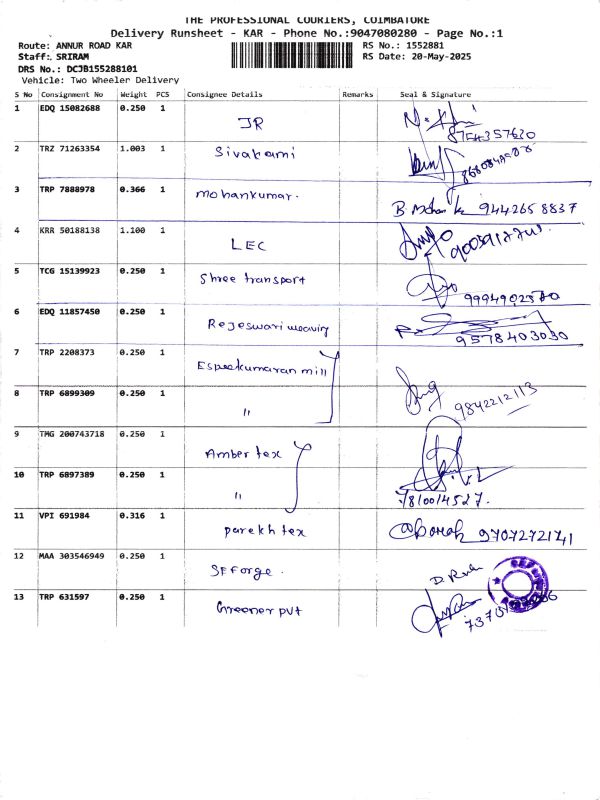 THE PROFESSIONAL COURIERS, COIMBATORE
Delivery Runsheet - KAR - Phone No.:9047080280 - Page No.:1
Route: ANNUR ROAD KAR RS No.: 1552881
Staff: SRIRAM RS Date: 20-May-2025
DRS No.: DCJB155288101
Vehicle: Two Wheeler Delivery
S No Consignment No Weight PCS Consignee Details Remarks Seal & Signature
1 EDQ 15082688 0.250 1 JR 8754357630
2 TRZ 71263354 1.003 1 Sivakami
3 TRP 7888978 0.366 1 mohankumar. B Mohan 9442658837
4 KRR 50188138 1.100 1 LEC
5 TCG 15139923 0.250 1 Shree transport
6 EDQ 11857450 0.250 1 Rejeswari weaving 9578403030
7 TRP 2208373 0.250 1 Espeekumaran mill
8 TRP 6899309 0.250 1 " 9842212113
9 TMG 200743718 0.250 1 Amber tex
10 TRP 6897389 0.250 1 " 7810014527.
11 VPI 691984 0.316 1 parekh tex 9707272141
12 MAA 303546949 0.250 1 SFForge.
13 TRP 631597 0.250 1 Greener pvt